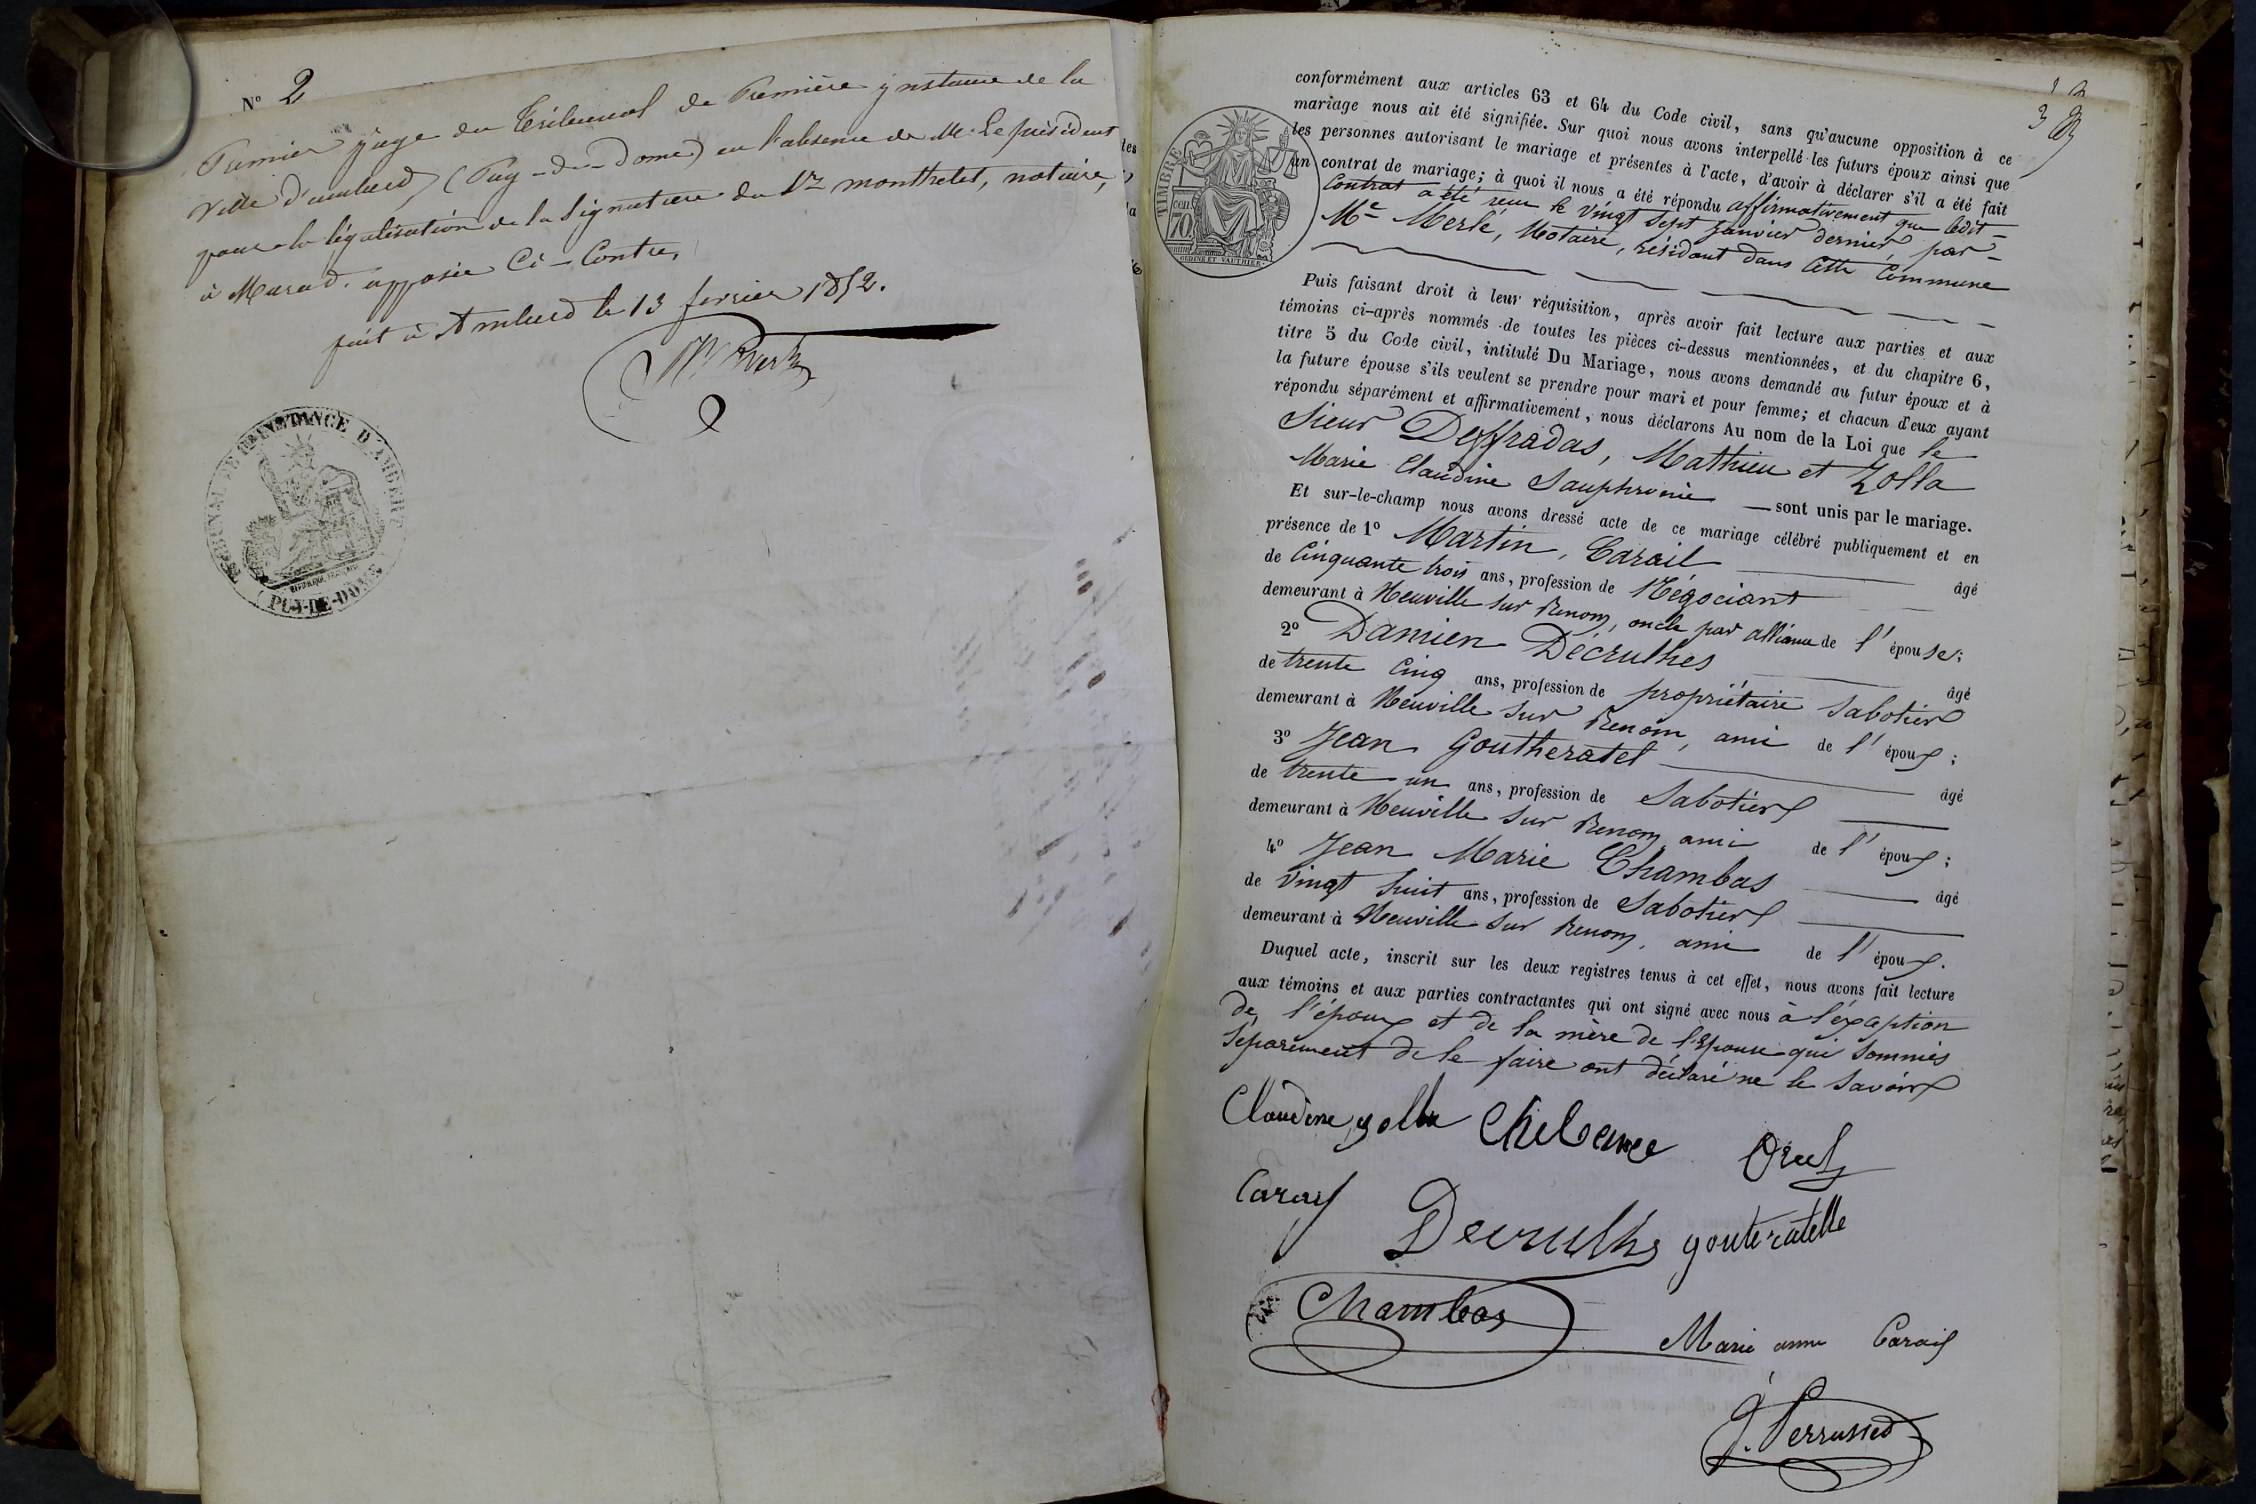 N° 2
Premier juge du Tribunal de Première ynstance de la
ville d'ambert (Puy-de-Dome) en l'absence de M. Le président
pour la légalisation de la signature du Sr monthelet, notaire,
à Marad. apposée Ci-Contre,
fait à Ambert le 13 fevrier 1852.
TRIBUNAL DE 1ERE INSTANCE D'AMBERT
(PUY-DE-DOME)
conformément aux articles 63 et 64 du Code civil, sans qu'aucune opposition à ce
mariage nous ait été signifiée. Sur quoi nous avons interpellé les futurs époux ainsi que
les personnes autorisant le mariage et présentes à l'acte, d'avoir à déclarer s'il a été fait
un contrat de mariage; à quoi il nous a été répondu affirmativement que ledit
Contrat a été reçu le vingt sept janvier dernier, par
Me Merle, Notaire, résidant dans Cette Commune
TIMBRE
70
OUDINE ET VAUTHIER.
Puis faisant droit à leur réquisition, après avoir fait lecture aux parties et aux
témoins ci-après nommés de toutes les pièces ci-dessus mentionnées, et du chapitre 6,
titre 5 du Code civil, intitulé Du Mariage, nous avons demandé au futur époux et à
la future épouse s'ils veulent se prendre pour mari et pour femme; et chacun d'eux ayant
répondu séparément et affirmativement, nous déclarons Au nom de la Loi que le
Sieur Deffradas, Mathieu et Zolla
Marie Claudine Sauphronie sont unis par le mariage.
Et sur-le-champ nous avons dressé acte de ce mariage célébré publiquement et en
présence de 1° Martin, Carail âgé
de Cinquante trois ans, profession de Négociant
demeurant à Neuville sur Renom, oncle par alliance de l'épouse;
2° Damien Décrulhes âgé
de trente Cinq ans, profession de propriétaire Sabotier
demeurant à Neuville sur Renom, ami de l'époux;
3° Jean Goutheratel âgé
de trente un ans, profession de Sabotier
demeurant à Neuville sur Renom ami de l'époux;
4° Jean Marie Chambas âgé
de vingt huit ans, profession de Sabotier
demeurant à Neuville sur Renom, ami de l'époux.
Duquel acte, inscrit sur les deux registres tenus à cet effet, nous avons fait lecture
aux témoins et aux parties contractantes qui ont signé avec nous à l'éxaption
de l'époux et de la mère de l'Epouse qui sommés
Séparément de le faire ont déclaré ne le Savoir
Claudine zolla
Carail Decrulhe gouteratelle
Chambas
Marie anne Carail
J. Perrussed